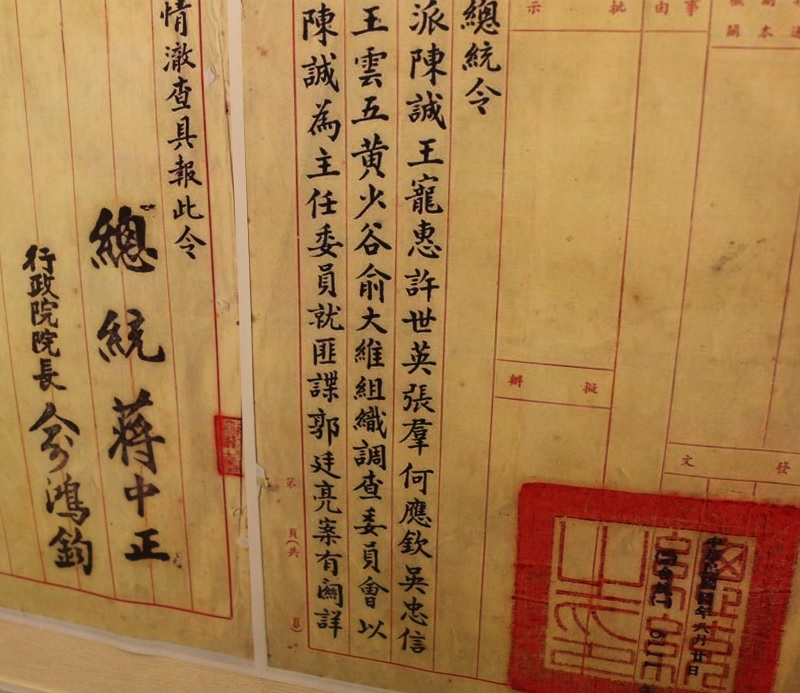 總統令
派陳誠王寵惠許世英張羣何應欽吳忠信
王雲五黃少谷俞大維組織調查委員會以
陳誠為主任委員就匪諜郭廷亮案有關詳
情澈查具報此令
總統蔣中正
行政院院長俞鴻鈞
事由
批示
擬辦
發文
第頁(共頁)